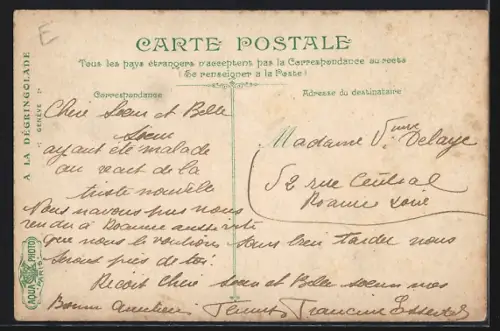 E
CARTE POSTALE
Tous les pays étrangers n'acceptent pas la Correspondance au recto
(Se renseigner à la Poste)
Correspondance
Adresse du destinataire
A LA DÉGRINGOLADE
GENÈVE
AQUA PHOTO
PARIS
Chère Sœur et Belle
Sœur
ayant été malade
au reçut de la
triste nouvelle
Nous navons pus nous
rendu à Roanne aussi
que nous le voudrions sans bien tarder nous
serons près de toi.
Reçoit Chère Sœur et Belle sœur nos
Bonne
Francine
Madame Vve Delaye
52 rue Central
Roanne Loire